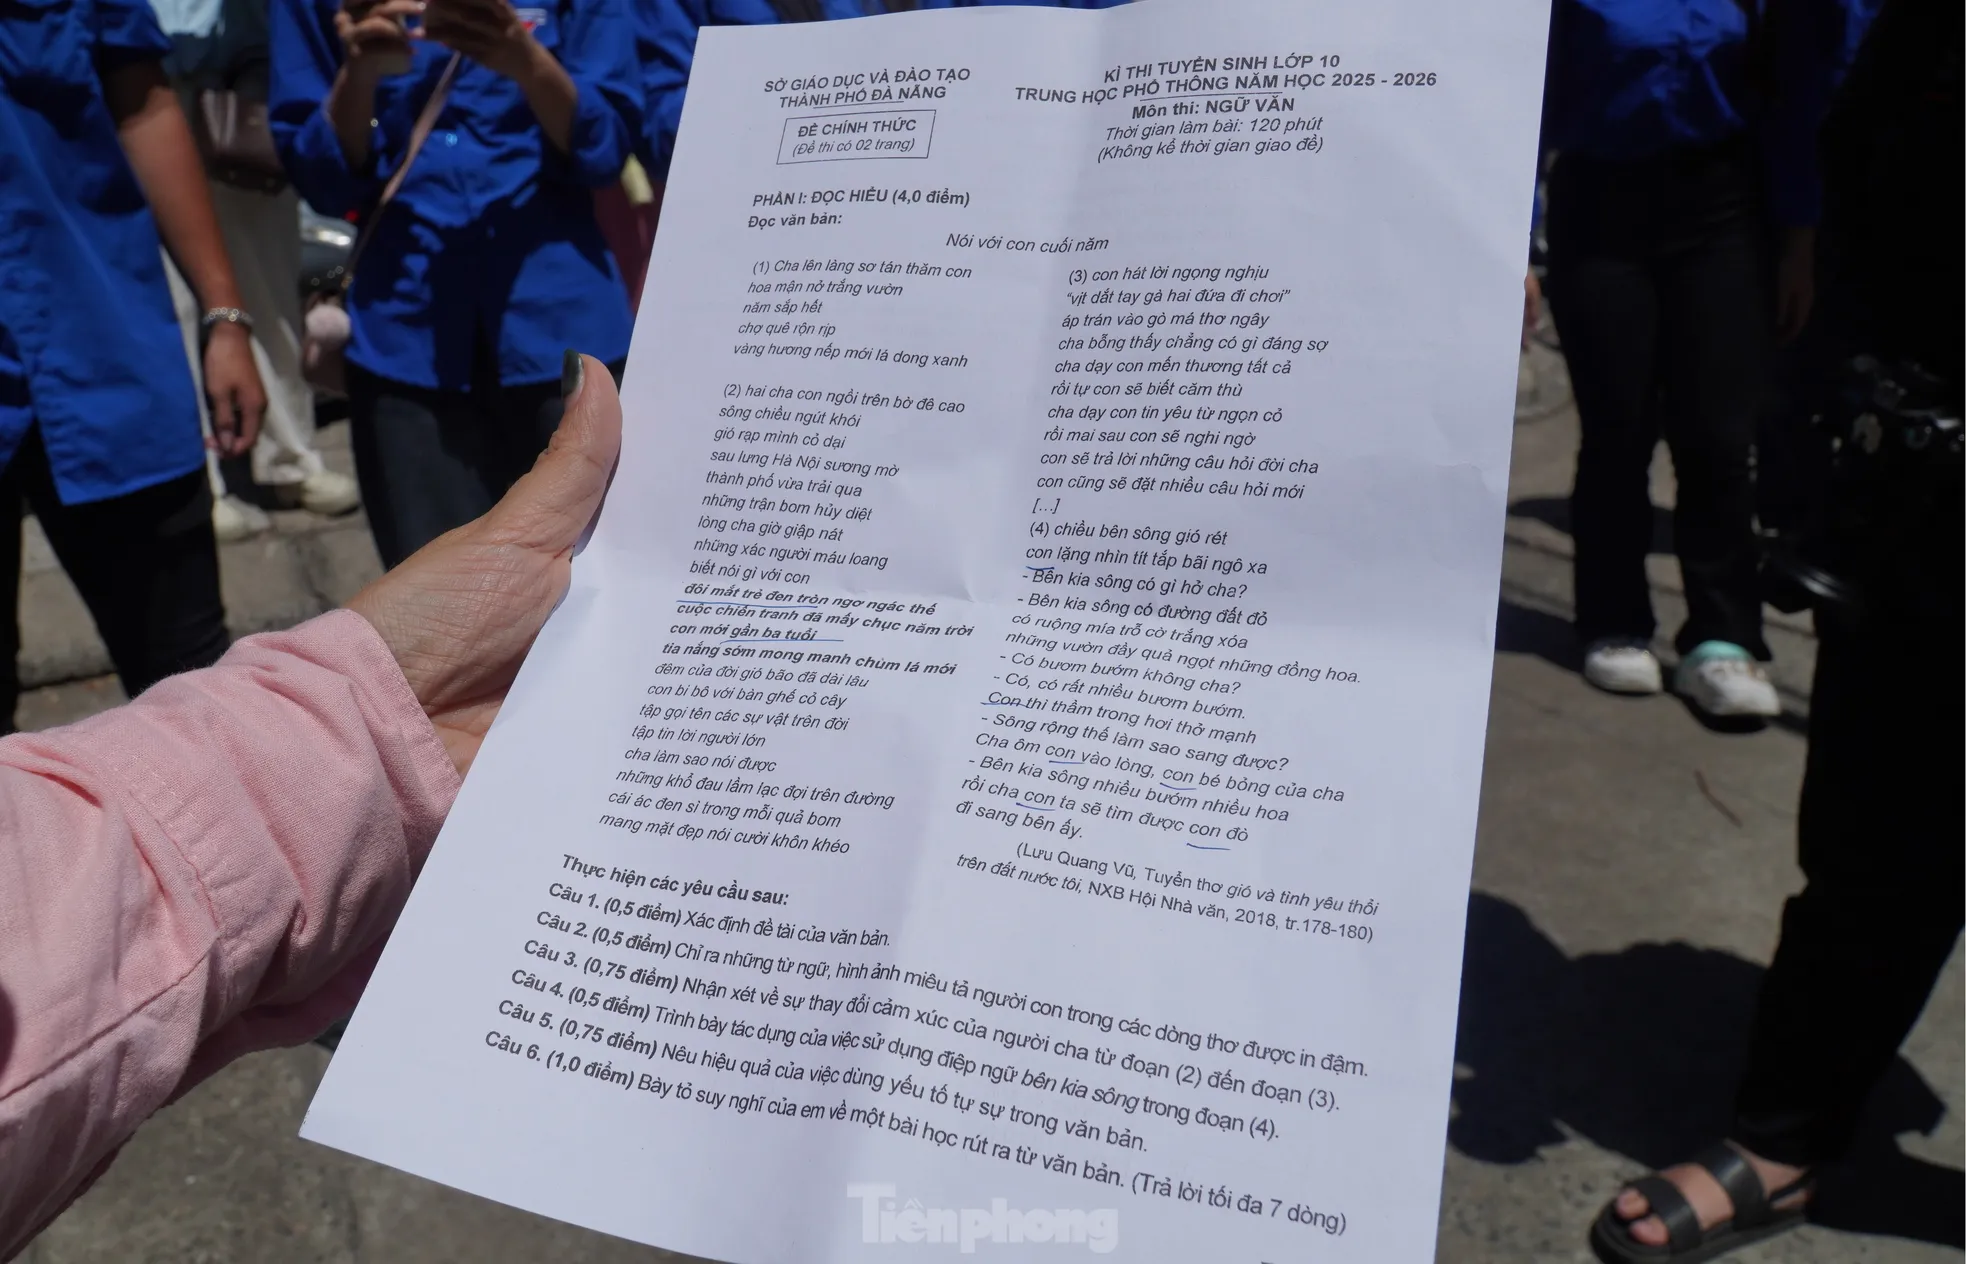 SỞ GIÁO DỤC VÀ ĐÀO TẠO
THÀNH PHỐ ĐÀ NẴNG
ĐỀ CHÍNH THỨC
(Đề thi có 02 trang)
KÌ THI TUYỂN SINH LỚP 10
TRUNG HỌC PHỔ THÔNG NĂM HỌC 2025 - 2026
Môn thi: NGỮ VĂN
Thời gian làm bài: 120 phút
(Không kể thời gian giao đề)
PHẦN I: ĐỌC HIỂU (4,0 điểm)
Đọc văn bản:
Nói với con cuối năm
(1) Cha lên làng sơ tán thăm con
hoa mận nở trắng vườn
năm sắp hết
chợ quê rộn rịp
vàng hương nếp mới lá dong xanh
(2) hai cha con ngồi trên bờ đê cao
sông chiều ngút khói
gió rạp mình cỏ dại
sau lưng Hà Nội sương mờ
thành phố vừa trải qua
những trận bom hủy diệt
lòng cha giờ giập nát
những xác người máu loang
biết nói gì với con
đôi mắt trẻ đen tròn ngơ ngác thế
cuộc chiến tranh đã mấy chục năm trời
con mới gần ba tuổi
tia nắng sớm mong manh chùm lá mới
đêm của đời gió bão đã dài lâu
con bi bô với bàn ghế cỏ cây
tập gọi tên các sự vật trên đời
tập tin lời người lớn
cha làm sao nói được
những khổ đau lầm lạc đợi trên đường
cái ác đen sì trong mỗi quả bom
mang mặt đẹp nói cười khôn khéo
(3) con hát lời ngọng nghịu
“vịt dắt tay gà hai đứa đi chơi”
áp trán vào gò má thơ ngây
cha bỗng thấy chẳng có gì đáng sợ
cha dạy con mến thương tất cả
rồi tự con sẽ biết căm thù
cha dạy con tin yêu từ ngọn cỏ
rồi mai sau con sẽ nghi ngờ
con sẽ trả lời những câu hỏi đời cha
con cũng sẽ đặt nhiều câu hỏi mới
[...]
(4) chiều bên sông gió rét
con lặng nhìn tít tắp bãi ngô xa
- Bên kia sông có gì hở cha?
- Bên kia sông có đường đất đỏ
có ruộng mía trỗ cờ trắng xóa
những vườn đầy quả ngọt những đồng hoa.
- Có bươm bướm không cha?
- Có, có rất nhiều bươm bướm.
Con thì thầm trong hơi thở mạnh
- Sông rộng thế làm sao sang được?
Cha ôm con vào lòng, con bé bỏng của cha
- Bên kia sông nhiều bướm nhiều hoa
rồi cha con ta sẽ tìm được con đò
đi sang bên ấy.
(Lưu Quang Vũ, Tuyển thơ gió và tình yêu thổi
trên đất nước tôi, NXB Hội Nhà văn, 2018, tr.178-180)
Thực hiện các yêu cầu sau:
Câu 1. (0,5 điểm) Xác định đề tài của văn bản.
Câu 2. (0,5 điểm) Chỉ ra những từ ngữ, hình ảnh miêu tả người con trong các dòng thơ được in đậm.
Câu 3. (0,75 điểm) Nhận xét về sự thay đổi cảm xúc của người cha từ đoạn (2) đến đoạn (3).
Câu 4. (0,5 điểm) Trình bày tác dụng của việc sử dụng điệp ngữ bên kia sông trong đoạn (4).
Câu 5. (0,75 điểm) Nêu hiệu quả của việc dùng yếu tố tự sự trong văn bản.
Câu 6. (1,0 điểm) Bày tỏ suy nghĩ của em về một bài học rút ra từ văn bản. (Trả lời tối đa 7 dòng)
Tiềnphong